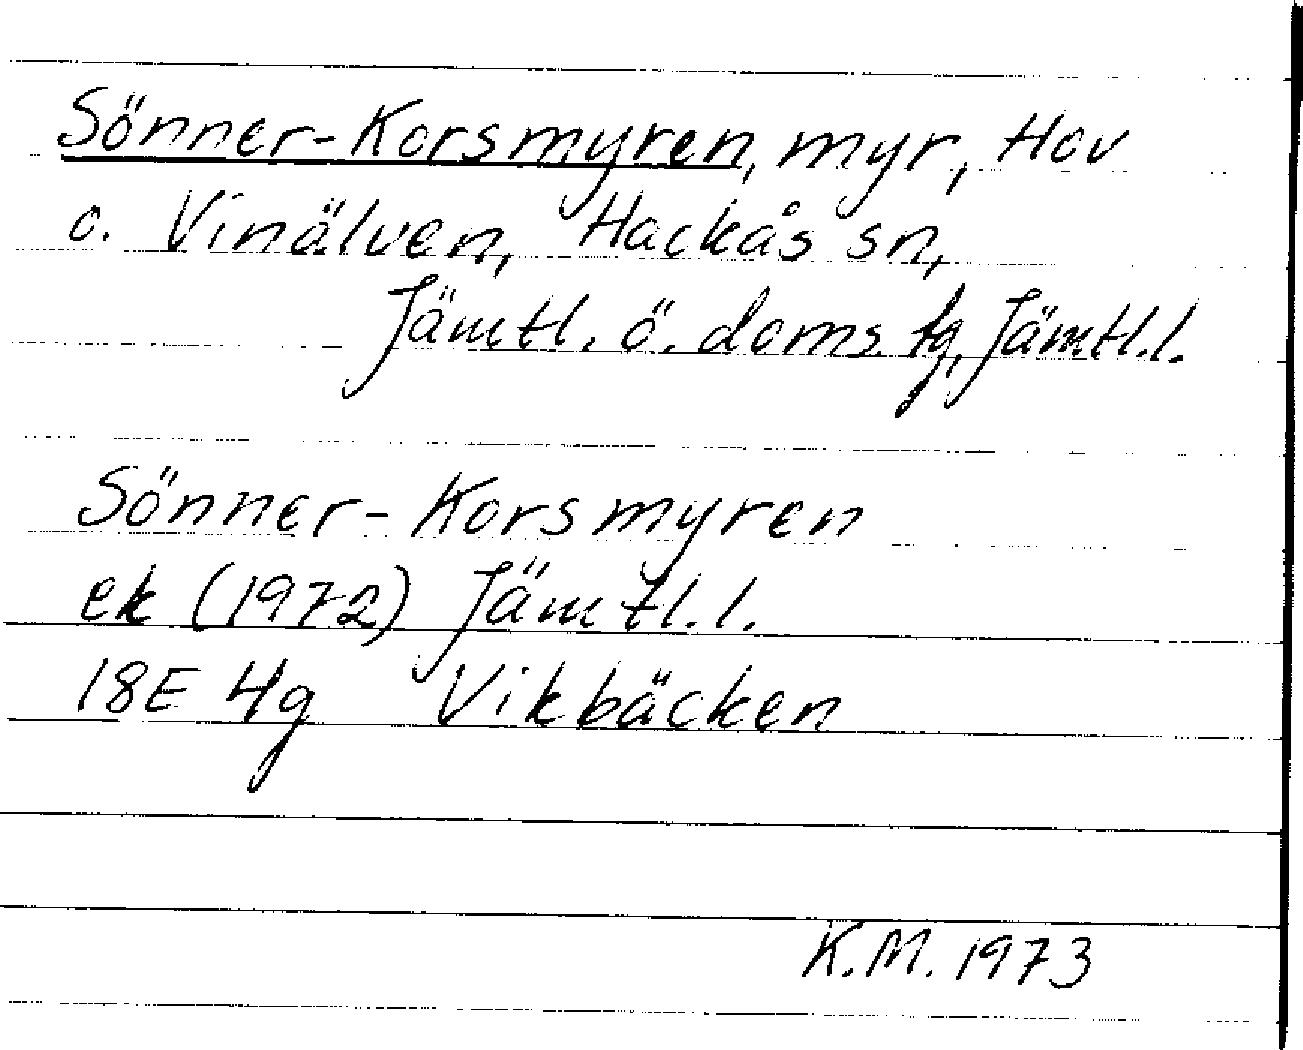 Sönner-Korsmyren, myr, Hov
o. Vinälven, Hackås sn,
Jämtl. ö. doms. tg, Jämtl. l.
Sönner-Korsmyren
ek (1972) Jämtl. l.
18E 4g Vikbäcken
K.M. 1973